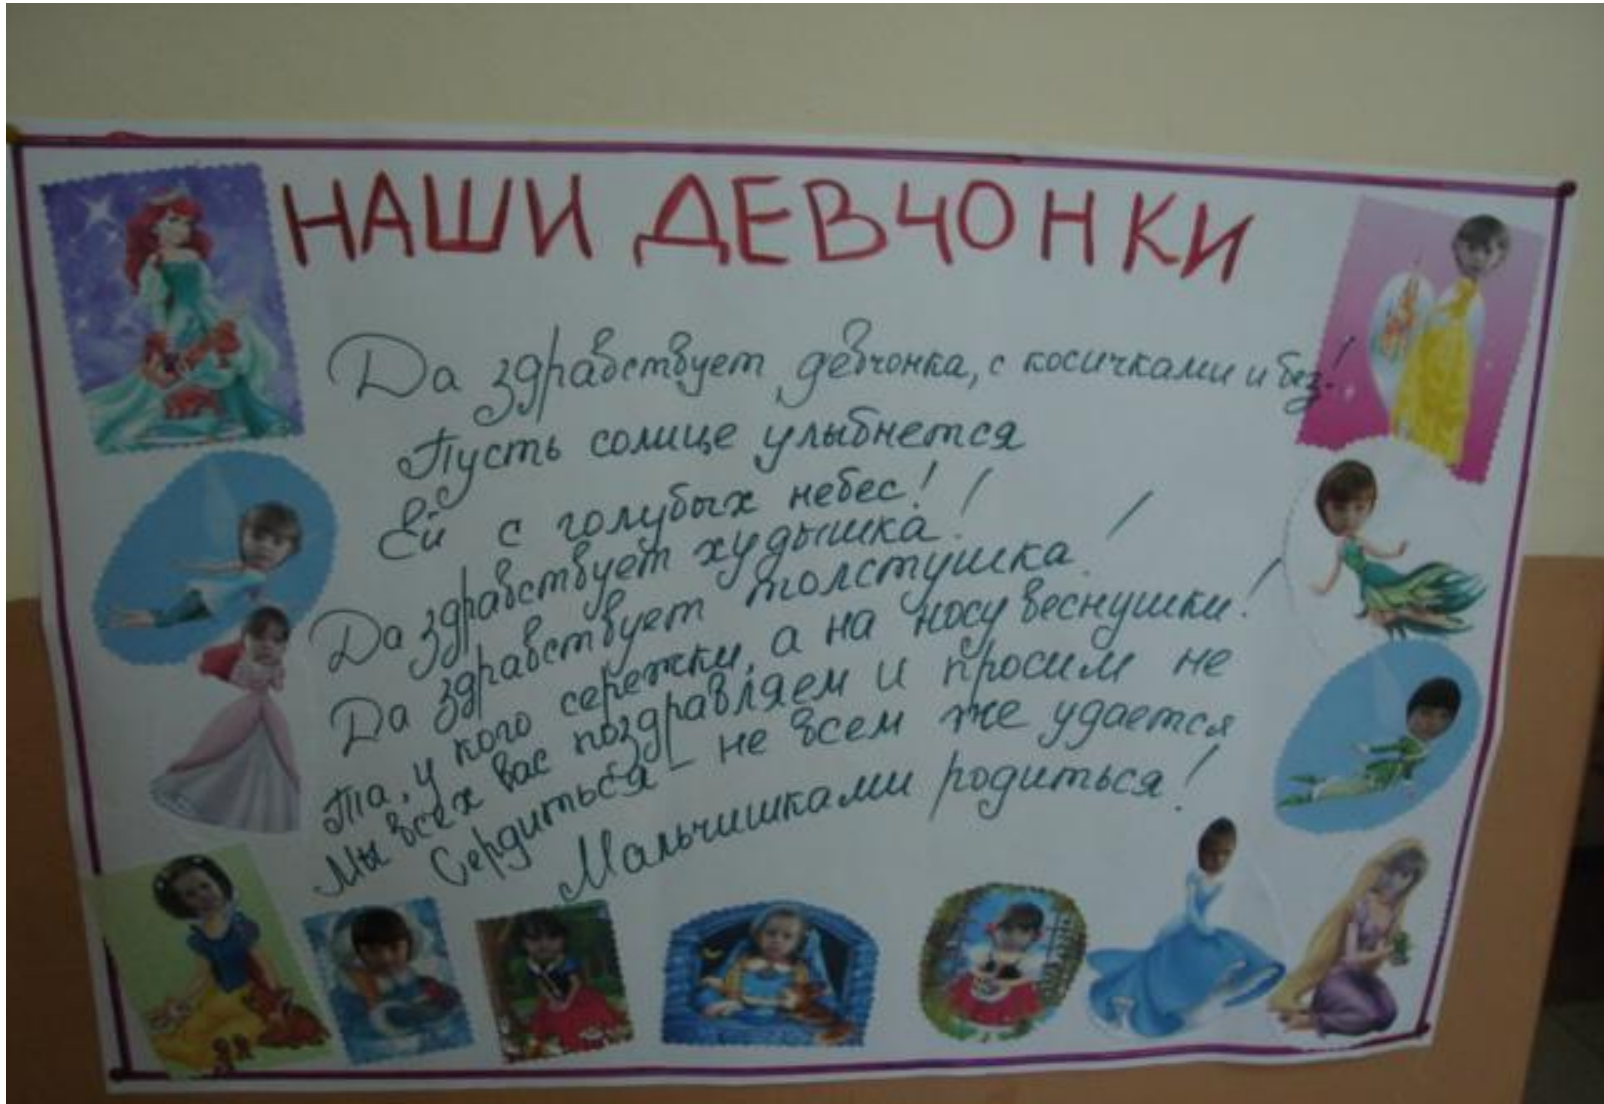 НАШИ ДЕВЧОНКИ
Да здравствует девчонка, с косичками и без!
Пусть солнце улыбнется
Ей с голубых небес!
Да здравствует худышка!
Да здравствует толстушка!
Та, у кого сережки, а на носу веснушки!
Мы всех вас поздравляем и просим не
Сердиться - не всем же удается
Мальчишками родиться!